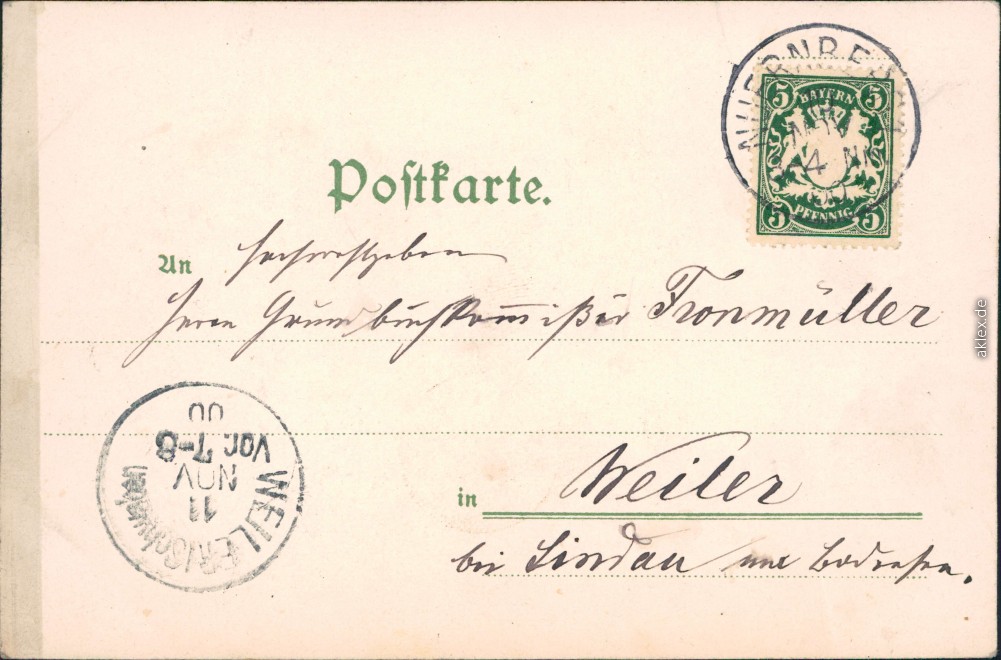 NUERNBERG
5 BAYERN 5
4 NM
00
5 PFENNIG 5
Postkarte.
An
Herrn Grundbuchkom̅ißär Fronmüller
WEILER
11
NOV
Vor. 7-8
00
in Weiler
bei Lindau am Bodensee.
aklex.de